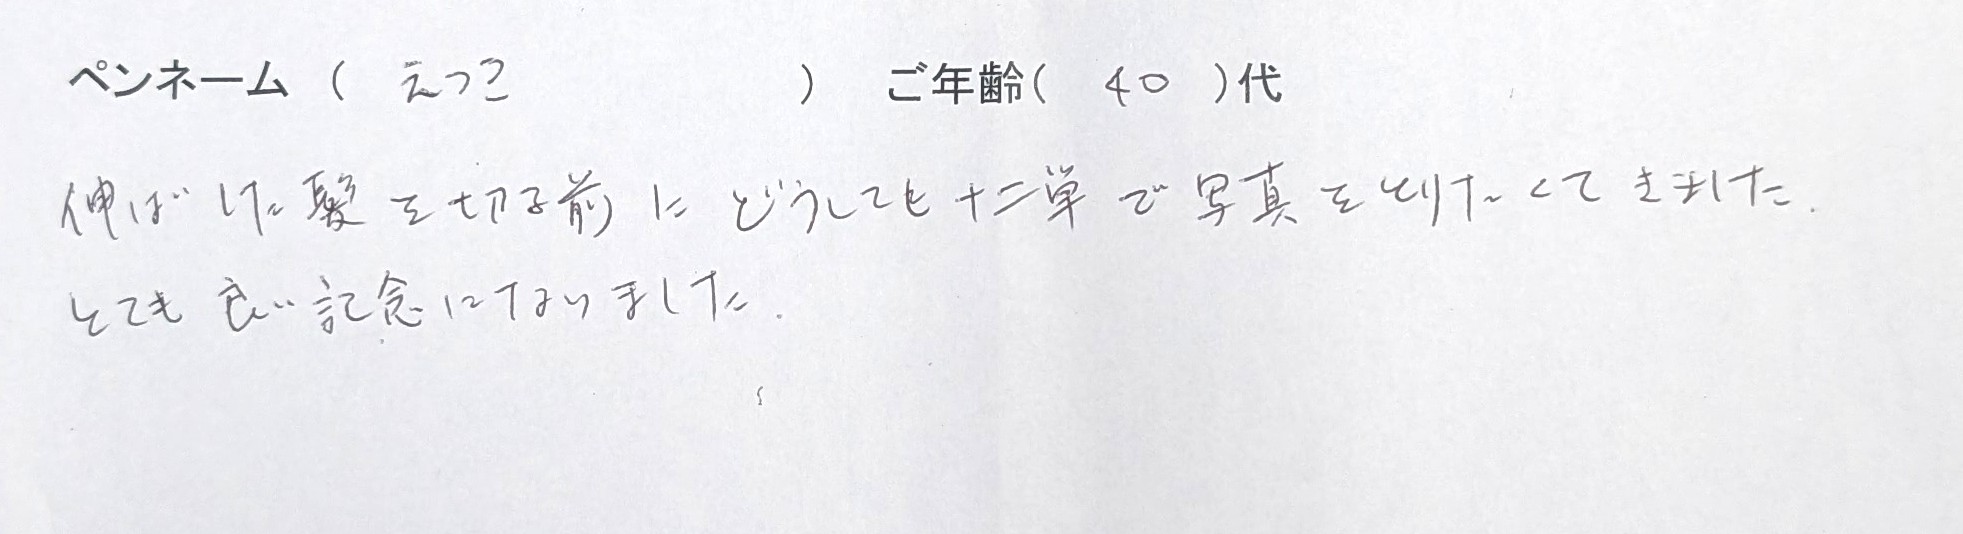 ペンネーム ( えつこ ) ご年齢( 40 )代
伸ばした髪を切る前にどうしても十二単で写真をとりたくてきました.
とても良い記念になりました.